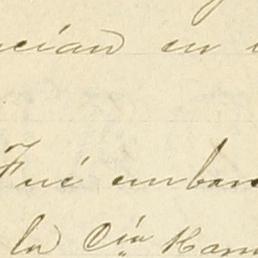 cian en
Fué embar
la Cía Ham